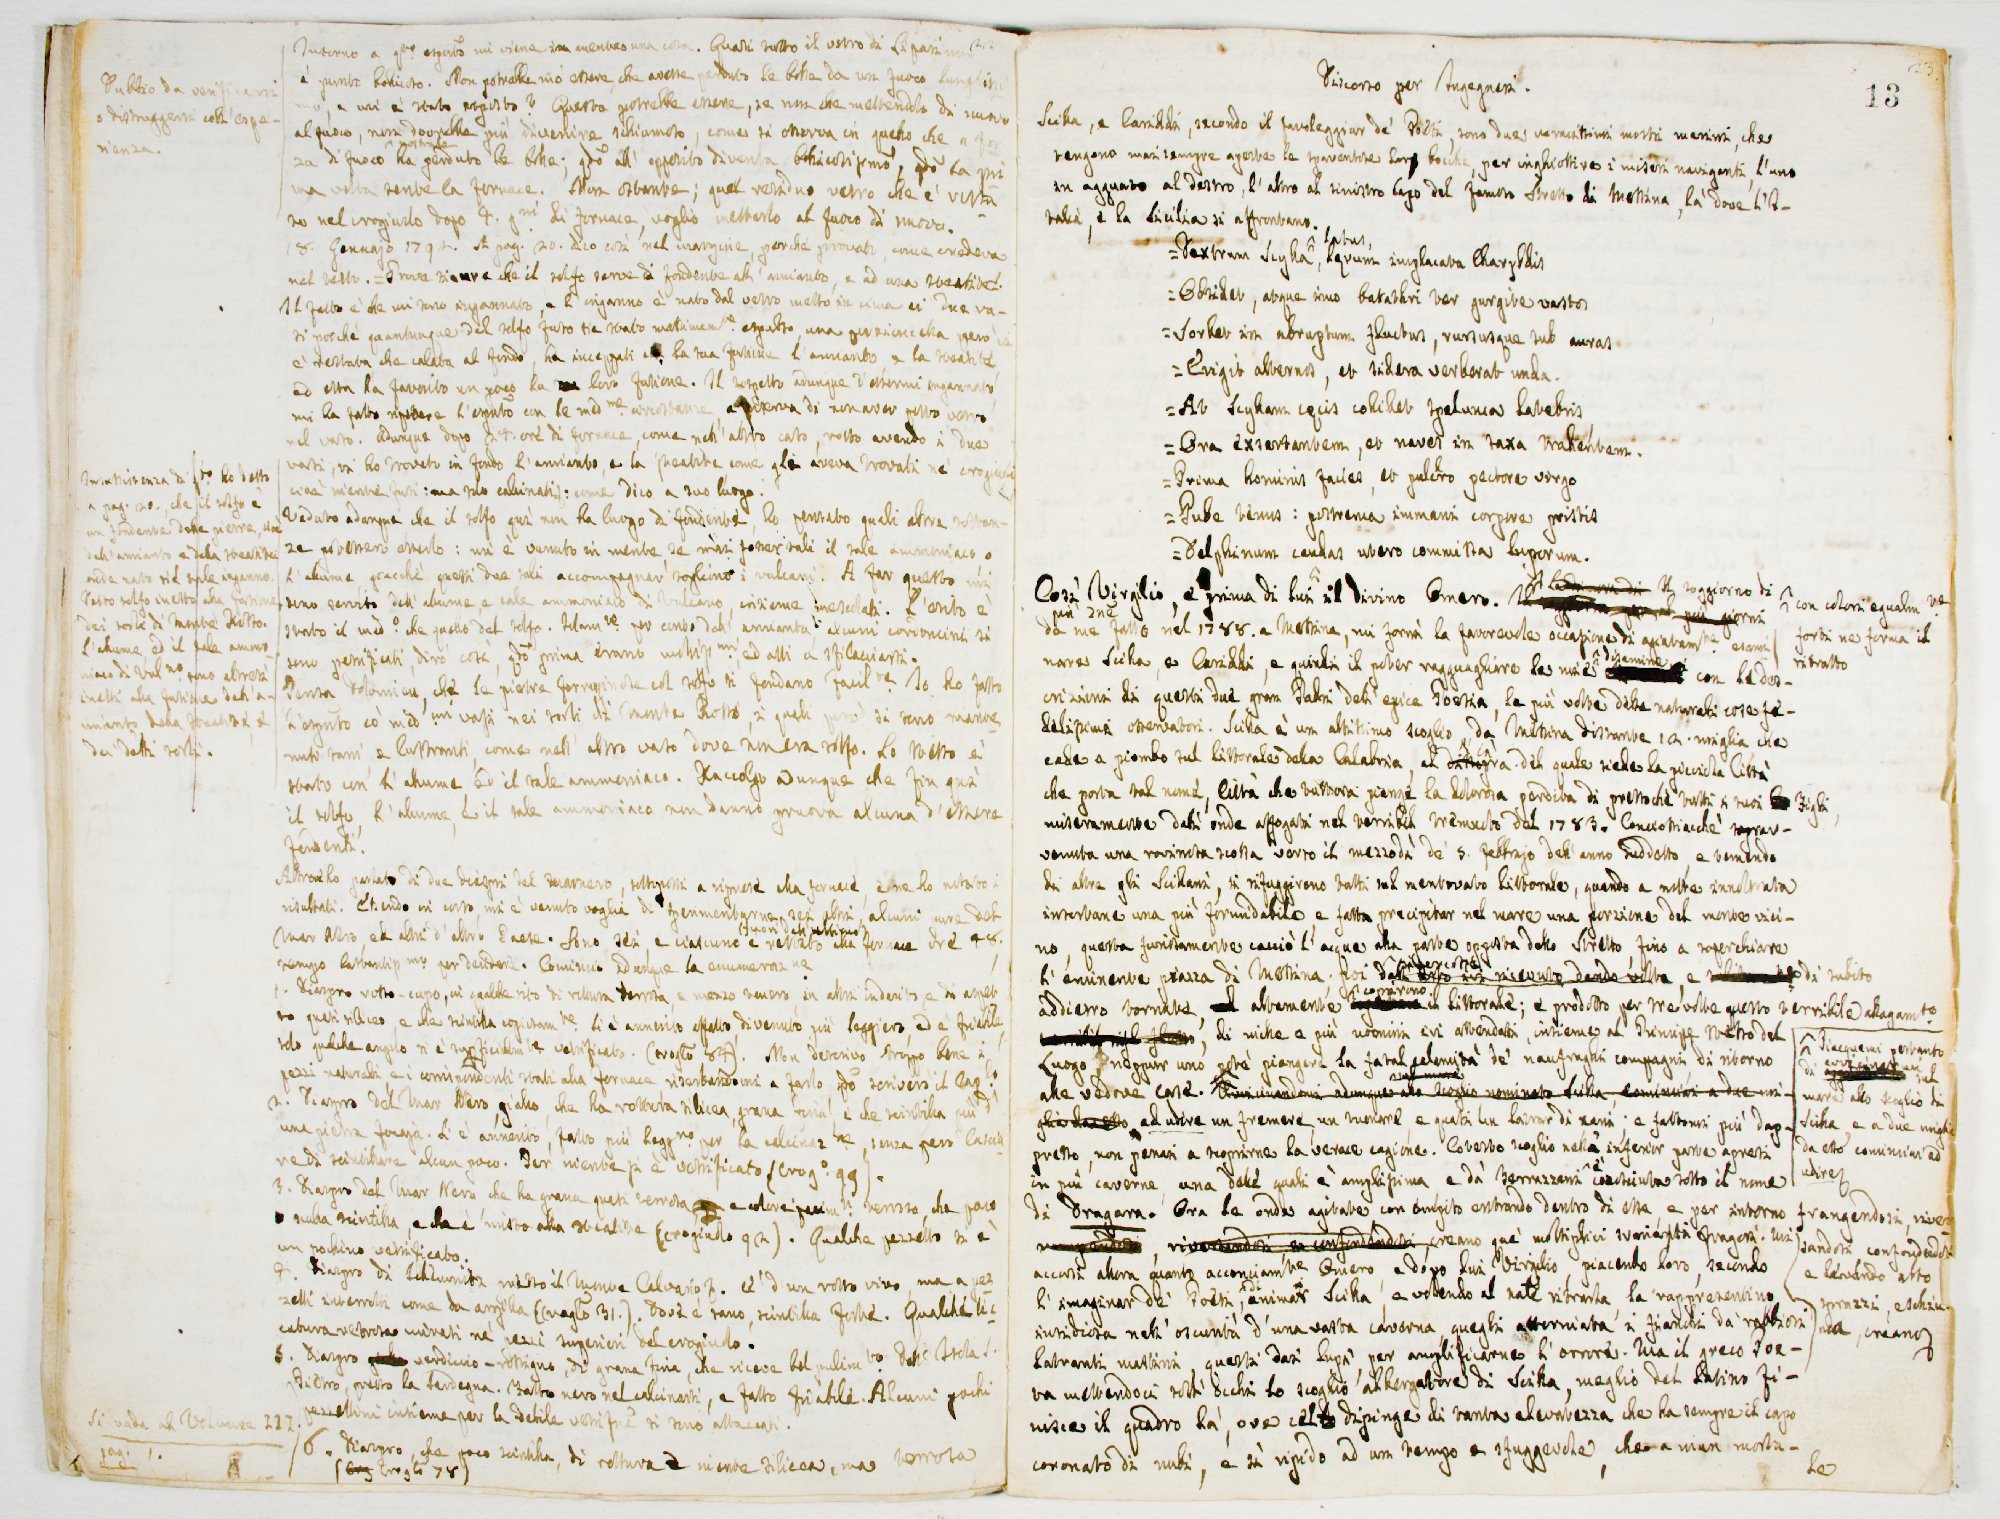 Dubbio da verificarsi
o distruggersi coll' espe-
rienza.
Intorno a q.to esperim.to mi viene in mente una cosa. Quasi tutto il vetro di Lipari
è pieno bollicoso. Non potrebbe mò essere, che avesse perduto le bolle da un fuoco lunghissi-
mo, a cui è stato esposto? Questo potrebbe essere, se non che mettendolo di nuovo
al fuoco, non dovrebbe più divenire schiumoso, come si osserva in quello che a for
za di fuoco ha perduto le bolle; q.do all' opposito diventa bollicosissimo, q.do la pri
ma volta sente la fornace. Non ostante; quel residuo vetro che è resta
to nel crogiuolo dopo 4. g.ni di fornace, voglio metterlo al fuoco di nuovo.
18. Gennajo 1792. A pag. 20. dico così nel margine, perchè provato, come credeva
nel testo. = Prova sicura che il solfo serve di fondente all' amianto, e ad una steatite.
Il fatto è che mi sono ingannato, e l' inganno è nato dal vetro messo in cima ai due va-
si poichè quantunque dal solfo fuso sia stato massimam.te espulso, una porzioncella però
è restata che calata al fondo, ha inceppati colla sua fusione l' amianto e la steatite,
ed essa ha favorito un poco la loro fusione. Il sospetto adunque d' essermi ingannato,
mi ha fatto ripetere l' esperim.to con le med.me circostanze a riserva di non aver posto vetro
nel vaso. Adunque dopo 24. ore di fornace, come nell' altro caso, rotto avendo i due
vasi, vi ho trovato in fondo l' amianto, e la steatite come gli aveva trovati ne' crogiuoli
cioè niente fusi: ma solo calcinati: come dico a suo luogo.
Insussistenza di q.to ho detto
a pag. 20., che il solfo è
un fondente delle pietre, cioè
dell' amianto e della steatite
onde nato sia tale inganno.
Posto solfo inetto alla fusione
dei sassi di Monte Rosso.
L' alume ed il sale ammo-
niaco di Vulcano sono altresì
inetti alla fusione dell' a-
mianto, della steatite, e
dei detti sassi.
Veduto adunque che il solfo qui non ha luogo di fondente, ho pensato quali altre sostan-
ze potessero esserlo: mi è venuto in mente se mai fosser tali il sale ammoniaco o
l' alume giacchè questi due sali accompagnar sogliono i vulcani. A far questo mi
sono servito dell' alume, e sale ammoniaco di Vulcano, insieme mescolati. L' esito è
stato il med.o che quello del solfo. Solam.te per conto dell' amianto alcuni cordoncini si
sono petrificati, dirò così, q.do prima erano mobiliss.mi, ed atti a sfilacciarsi.
Pensa Dolomieu, che le pietre ferruginose col solfo si fondano facil.te Io ho fatto
l' esperim.to co' med.mi vasi nei sassi di Monte Rosso, i quali però si sono mante
nuti sani e lustranti, come nell' altro vaso dove non era solfo. Lo stesso è
stato con l' alume ed il sale ammoniaco. Raccolgo adunque che fin quì
il solfo, l' alume, e il sale ammoniaco non danno pruova alcuna d' essere
fondenti.
Altrove ho parlato di due diaspri del ... , sottoposti a ... alla fornace, e ne ho notato i
risultati. Essendo in corso, mi è venuto voglia di sperimentarne sei altri, alcuni pure del
Mar Nero, ed altri d' altro Paese. Sono sei e ciascuno è restato alla fornace ore 48.
tempo bastantiss.mo per decidere. Comincio adunque la enumeraz.ne
1. Diaspro rosso-cupo, in qualche sito di rottura terrosa, e mezzo venoso in altri indurito e di aspet
to quasi siliceo, e che scintilla copiosam.te Si è annerito, affatto divenuto più leggiero, ed è friabile,
solo qualche angolo si è superficialm.te vetrificato. (crogi.lo 84). Non descrivo troppo bene i
pezzi naturali e i corrispondenti stati alla fornace riserbandomi a farlo q.do scriverò il Cap.lo
2. Diaspro del Mar Nero, giallo che ha rottura silicea, grana fina, e che scintilla più d'
una pietra focaja. Si è annerito, fatto più legg.ro per la calcinaz.ne, senza però lascia
re di scintillare alcun poco. Per niente si è vetrificato (Crog.o 99).
3. Diaspro del Mar Nero che ha grana quasi terrosa, e colore parim.ti terroso, che poco
o nulla scintilla e che è misto alla steatite (crogiuolo 92). Qualche pezzetto si è
un pochino vetrificato.
4. Diaspro di Schemnitz presso il Monte Calvario. È d' un rosso vivo, ma a pez
zetti interrotti come da argilla (crogi.lo 31.). Dove è sano, scintilla forte. Qualche lec
catura vetrosa mirasi ne' pezzi superiori del crogiuolo.
5. Diaspro verdiccio-rossigno, di grana fina, che riceve bel pulim.to Dell' Isola S.
Pietro, presso la Sardegna. Fatto nero nel calcinarsi, e fatto friabile. Alcuni pochi
pezzettini insieme per la debole vetrific.ne si sono attaccati.
Si vada al Volume III.
pag. 1.
6. Diaspro, che poco scintilla, di rottura niente silicea, ma terrosa
(Crogi.lo 78)
13
Discorso per Ingegneri.
Scilla, e Cariddi, secondo il favoleggiar de' Poeti, sono due voracissimi mostri marini, che
tengono mai sempre aperte le spaventose lor bocche, per inghiottire i miseri naviganti, l' uno
in agguato al destro, l' altro al sinistro capo del famoso Stretto di Messina, là dove l' I-
talia, e la Sicilia si affrontano.
= Dextrum Scylla latus, lęvum implacata Charybdis
= Obsidet, atque imo barathri ter gurgite vastos
= Sorbet in abruptum fluctus, rursusque sub auras
= Erigit alternos, et sidera verberat unda.
= At Scyllam cęcis cohibet spelunca latebris
= Ora exsertantem, et naves in saxa trahentem.
= Prima hominis facies, et pulchro pectore virgo
= Pube tenus: postrema immani corpore pristis
= Delphinum caudas utero commissa luporum.
Così Virgilio, e prima di lui il divino Omero. Il soggiorno di
più g.ni
da me fatto nel 1788. a Messina, mi fornì la favorevole occasione di agiatam.te esami
nare Scilla, e Cariddi, e quindi il poter ragguagliare le mie disamine con le des-
crizioni di questi due gran Padri dell' epica Poesia, le più volte delle naturali cose fe-
delissimi osservatori. Scilla è un altissimo scoglio, da Messina distante 12. miglia che
cade a piombo sul littorale della Calabria, al di là del quale siede la picciola Città
che porta tal nome, Città che tuttora piange la dolorosa perdita di pressochè tutti i suoi figli,
miseramente dall' onde affogati nel terribil tremuoto del 1783. Conciossiacchè soprav-
venuta una rovinosa scossa verso il mezzodì de' 5. Febbrajo dell' anno suddetto, e temendo
di altre gli Scillani, si rifuggirono tutti sul mentovato littorale, quando a notte innoltrata
insortane una più formidabile e fatta precipitar nel mare una porzione del monte vici-
no, questa furiosamente cacciò l' acque alla parte opposta dello Stretto, fino a soperchiare
l' eminente piazza di Messina. Poi ..., e di subito
addietro tornate, altamente coprirono il littorale; e prodotto per tre volte questo terribile allagam.to
di mille e più uomini ivi attendati, insieme al Principe stesso del
Luogo neppur uno potè piangere la fatal calamità de' naufraghi compagni di ritorno
alle vedove case. Avvicinandomi adunque allo scoglio nominato Scilla, cominciai a due mi-
glia da esso, ad udire un fremere, un muover e quasi un latrar di cani: e fattomi più dap-
presso, non penai a scoprirne la verace cagione. Cotesto scoglio nella inferior parte apresi
in più caverne, una delle quali è amplissima e da' Terrazzani è conosciuta sotto il nome
di Dragara. Ora le onde agitate con empito entrando dentro di esse, e per intorno frangendosi, river
rompendosi, riversandosi e confondendosi, creano que' moltiplici svariatissimi fragori. Mi
accorsi allora quanto acconciam.te Omero, e dopo lui Virgilio, piacendo loro, secondo
l' immaginar de' Poeti, di animar Scilla, e volendo al nat.le ritrarla, la rappresentino
insidiosa nell' oscurità d' una vasta caverna, quegli attorniata i fianchi da rabbiosi
latranti mastini, questi dai lupi, per amplificarne l' orrore. Ma il greco Poe-
ta mettendoci sott' occhi lo scoglio albergatore di Scilla, meglio del Latino fi-
nisce il quadro là, ove cel dipinge di tanta elevatezza che ha sempre il capo
coronato di nubi, e sì ripido ad un tempo e sfuggevole, che a niun morta-
le
con colori egualm.te
forti ne forma il
ritratto
Piacquemi pertanto
di avvicinarmi sul
mare allo scoglio di
Scilla, e a due miglia
da esso cominciai ad
udire
sandosi confondendosi
e levando alto
sprazzi, e schiu-
ma, creano